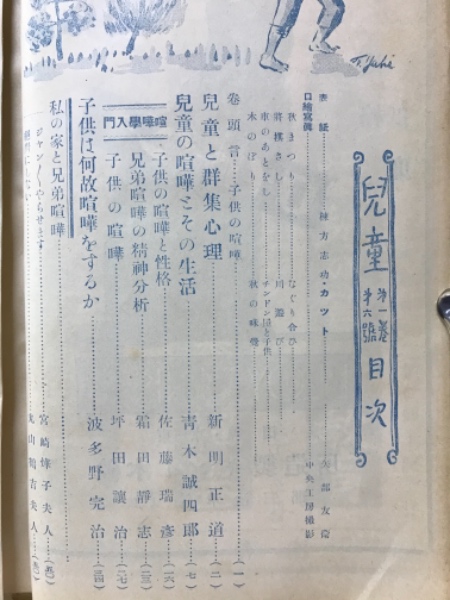 兒童 第一卷 第六號 目次
表紙……棟方志功・カット……矢部友衞
口繪寫眞……中央工房撮影
秋まつり……なぐり合ひ
將棋さし……川遊び
車のあとをし……チンドン屋と子供
木のぼり……秋の味覺
卷頭言……子供の喧嘩……(一)
兒童と群集心理……新明正道(二)
兒童の喧嘩とその生活……靑木誠四郎(七)
喧嘩學入門
子供の喧嘩と性格……佐藤瑞彥(一六)
兄弟喧嘩の精神分析……霜田靜志(二三)
子供の喧嘩……坪田讓治(二七)
子供は何故喧嘩をするか……波多野完治(三四)
私の家と兄弟喧嘩
ジャン〱やらせます……宮崎 子夫人
丸山鶴吉夫人
T. Yabe